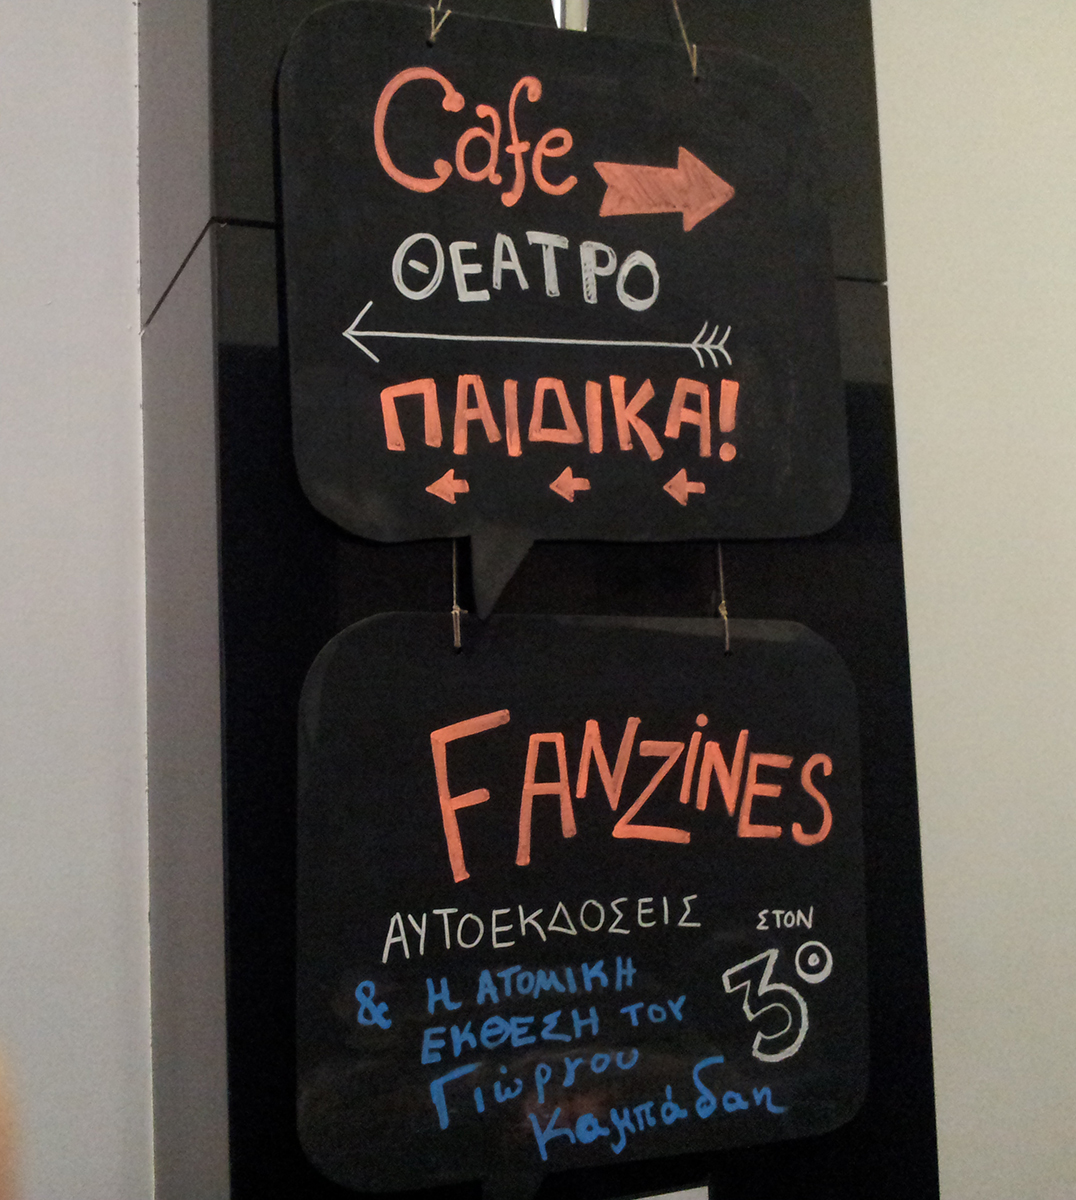 Cafe
ΘΕΑΤΡΟ
ΠΑΙΔΙΚΑ!
FANZiNES
ΑΥΤΟΕΚΔΟΣΕΙΣ
ΣΤΟΝ
3º
& Η ΑΤΟΜΙΚΗ
ΕΚΘΕΣΗ ΤΟΥ
Γιώργου
Καμπάδαη